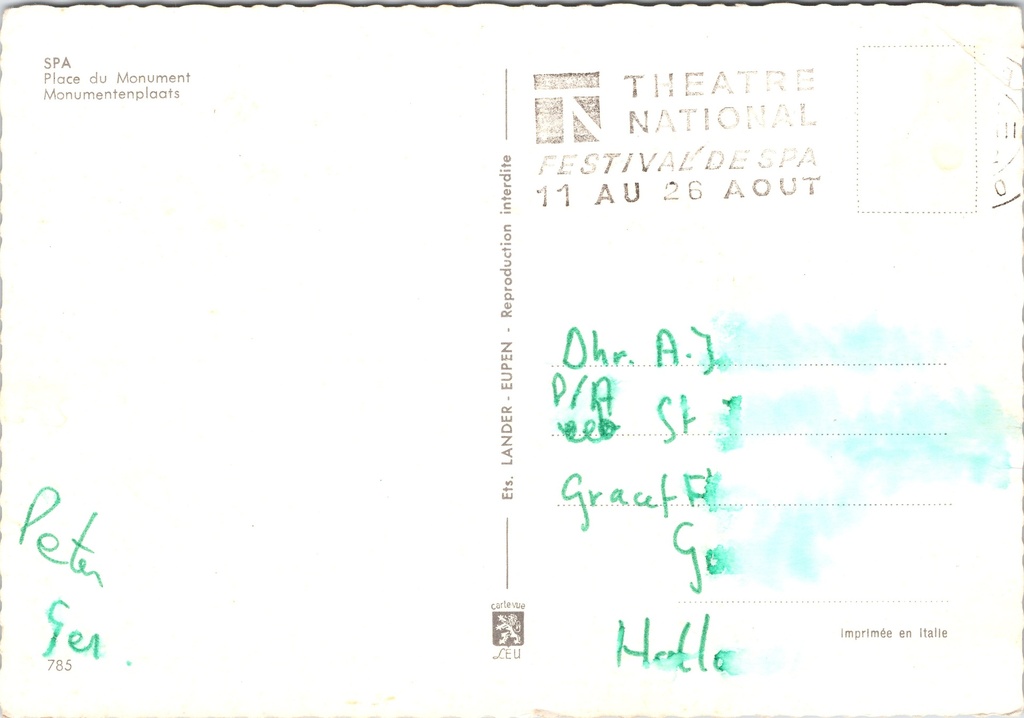 SPA
Place du Monument
Monumentenplaats
THEATRE
NATIONAL
FESTIVAL DE SPA
11 AU 26 AOUT
Ets. LANDER - EUPEN - Reproduction interdite
Dhr. A.J
P/A
St
Graaf Fl
Go
Holla
Peter
Ger.
785
cartevue
LEU
Imprimée en Italie